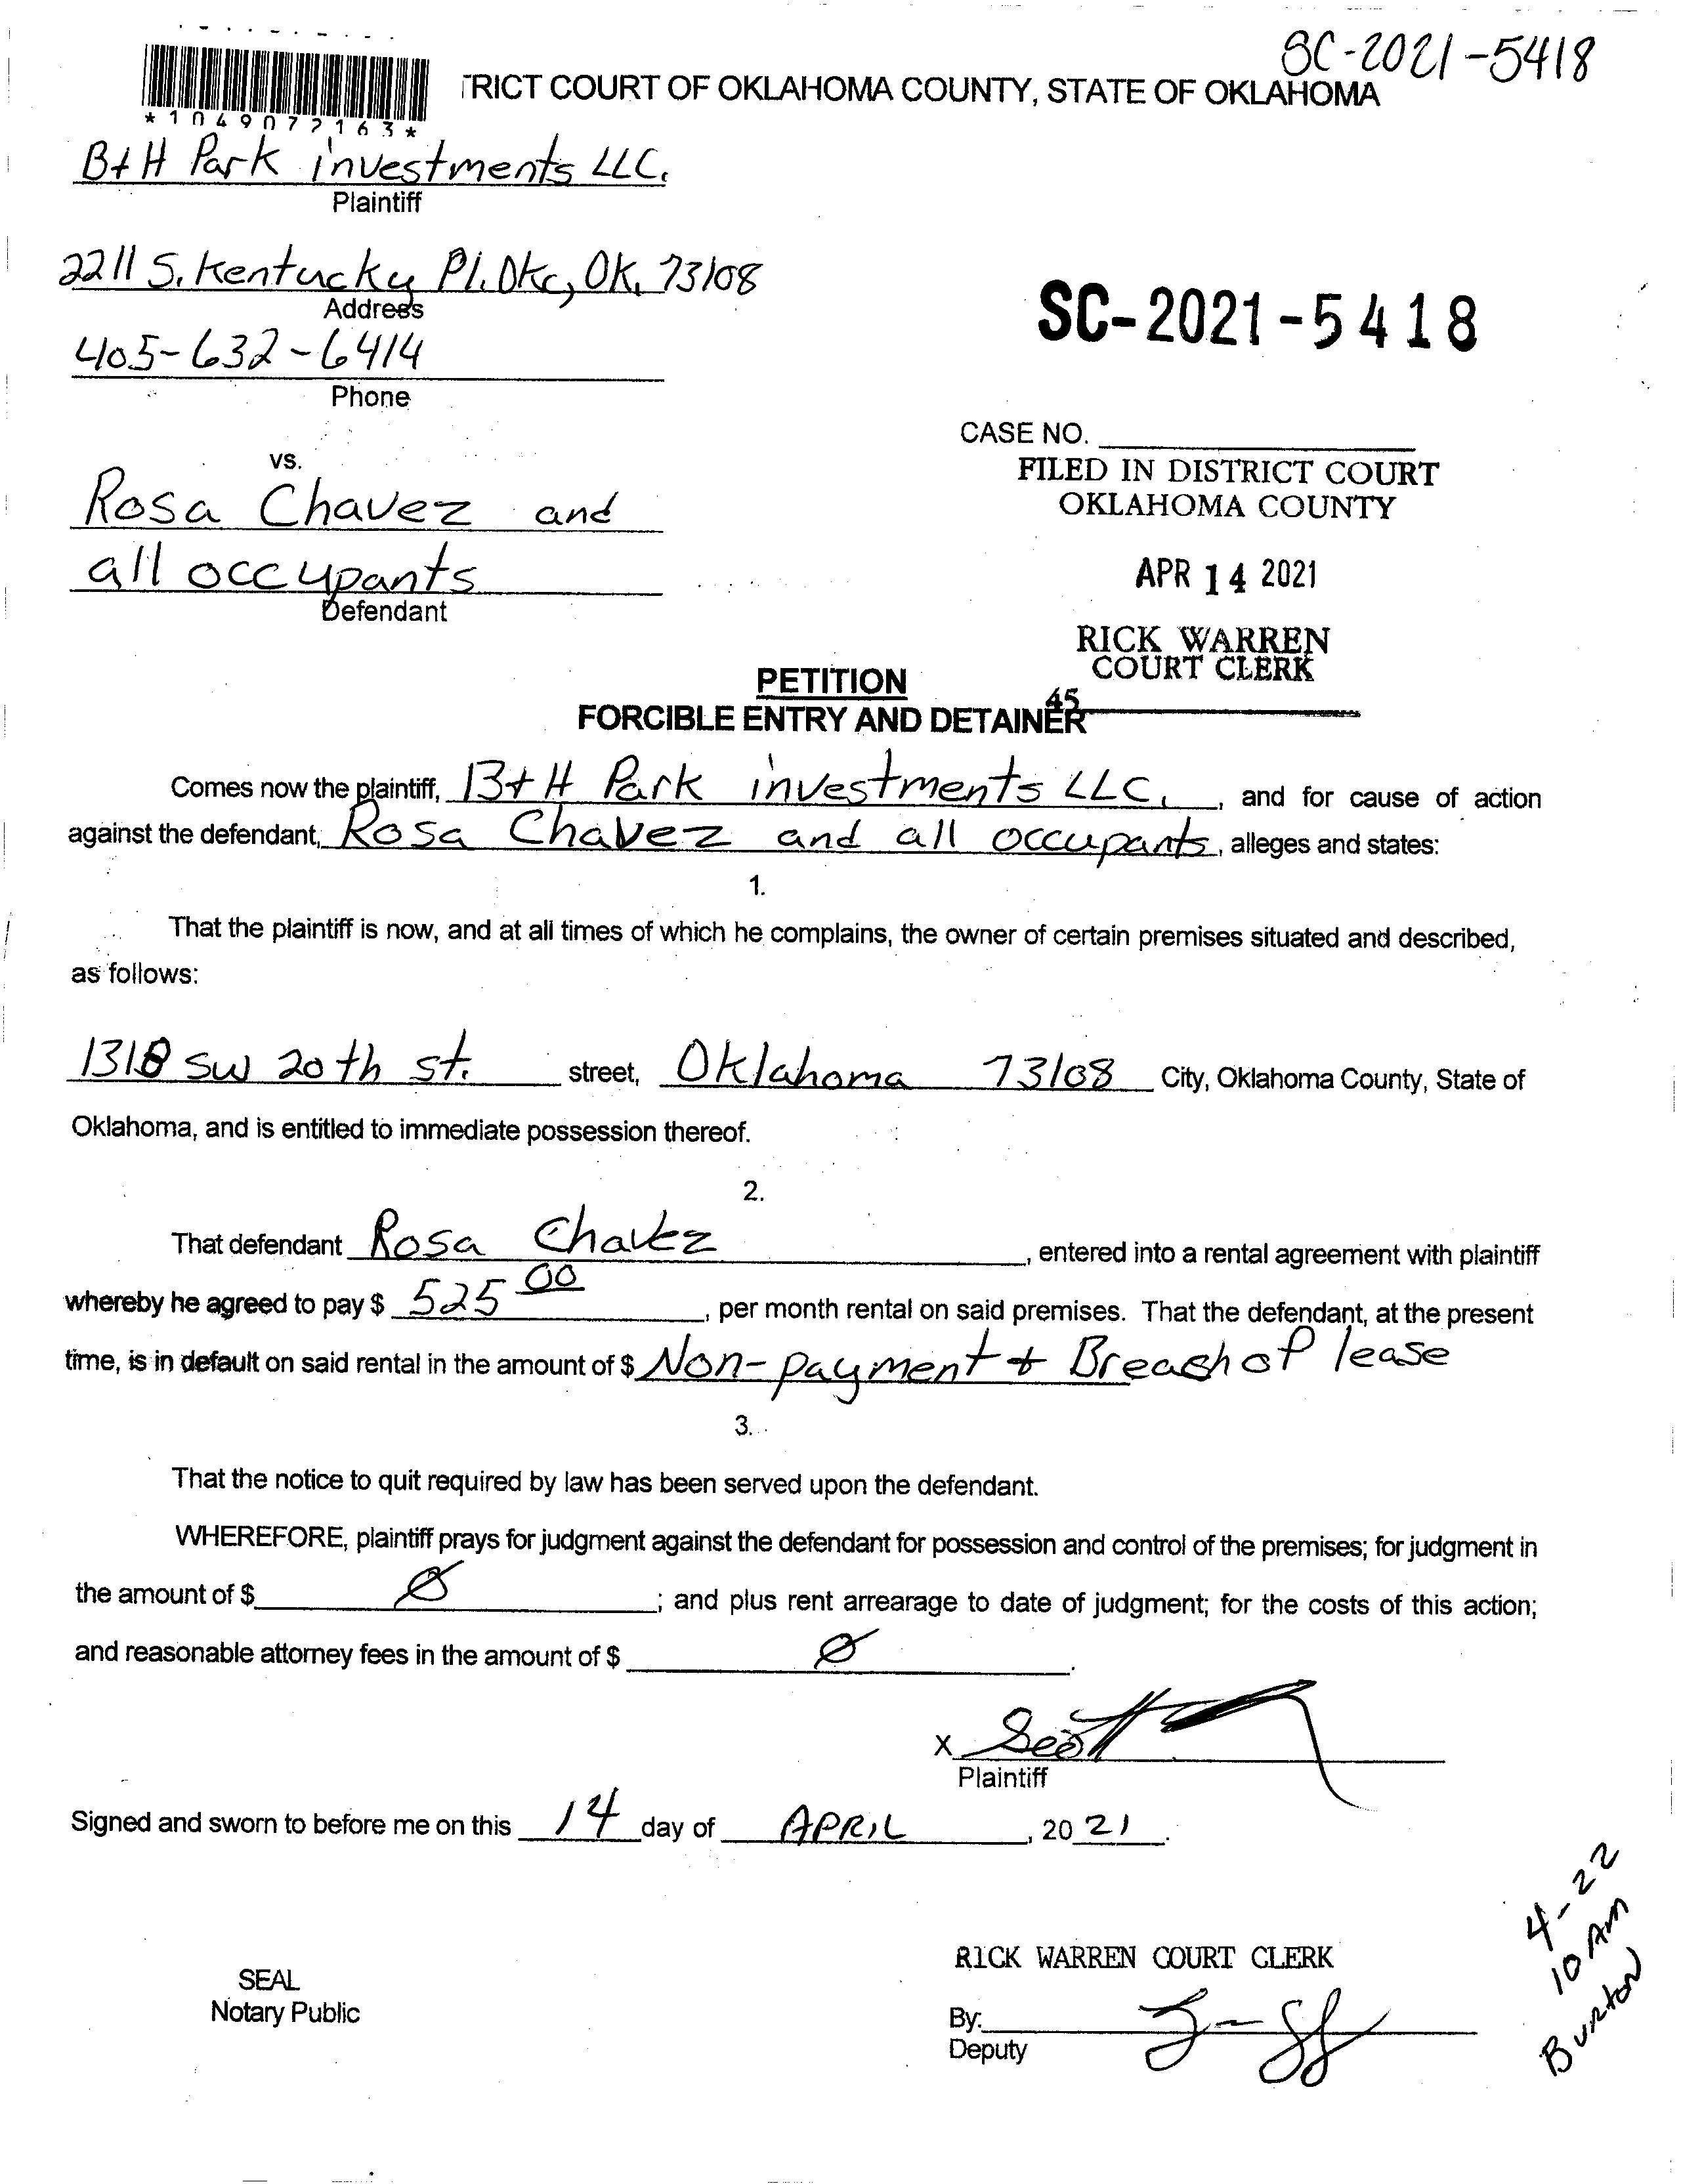 SC-2021-5418
TRICT COURT OF OKLAHOMA COUNTY, STATE OF OKLAHOMA
*1049072163*
B+H Park investments LLC.
Plaintiff
2211 S. Kentucky Pl. Okc, OK, 73108
Address
405-632-6414
Phone
SC-2021-5418
CASE NO.
vs.
FILED IN DISTRICT COURT
OKLAHOMA COUNTY
Rosa Chavez and
all occupants
Defendant
APR 14 2021
RICK WARREN
COURT CLERK
45
PETITION
FORCIBLE ENTRY AND DETAINER
Comes now the plaintiff, B+H Park investments LLC., and for cause of action
against the defendant, Rosa Chavez and all occupants, alleges and states:
1.
That the plaintiff is now, and at all times of which he complains, the owner of certain premises situated and described,
as follows:
1318 SW 20th st. street, Oklahoma 73108 City, Oklahoma County, State of
Oklahoma, and is entitled to immediate possession thereof.
2.
That defendant Rosa Chavez, entered into a rental agreement with plaintiff
whereby he agreed to pay $ 525 00, per month rental on said premises. That the defendant, at the present
time, is in default on said rental in the amount of $ Non-payment + Breach of lease
3.
That the notice to quit required by law has been served upon the defendant.
WHEREFORE, plaintiff prays for judgment against the defendant for possession and control of the premises; for judgment in
the amount of $ Ø ; and plus rent arrearage to date of judgment; for the costs of this action;
and reasonable attorney fees in the amount of $ Ø .
X Scott
Plaintiff
Signed and sworn to before me on this 14 day of APRIL, 20 21.
4-22
10 AM
Burton
RICK WARREN COURT CLERK
SEAL
Notary Public
By:
Deputy